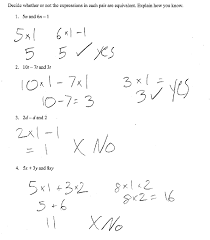 Decide whether or not the expressions in each pair are equivalent. Explain how you know.
1. 5n and 6n – 1
5x1 6x1-1
5 5 ✓ yes
2. 10t – 7t and 3t
10x1-7x1 3x1 =
10-7=3 3 ✓ yes
3. 2d – d and 2
2x1-1
= 1 X No
4. 5x + 3y and 8xy
5x1+3x2 8x1x2
5+6 8x2 = 16
11 X No